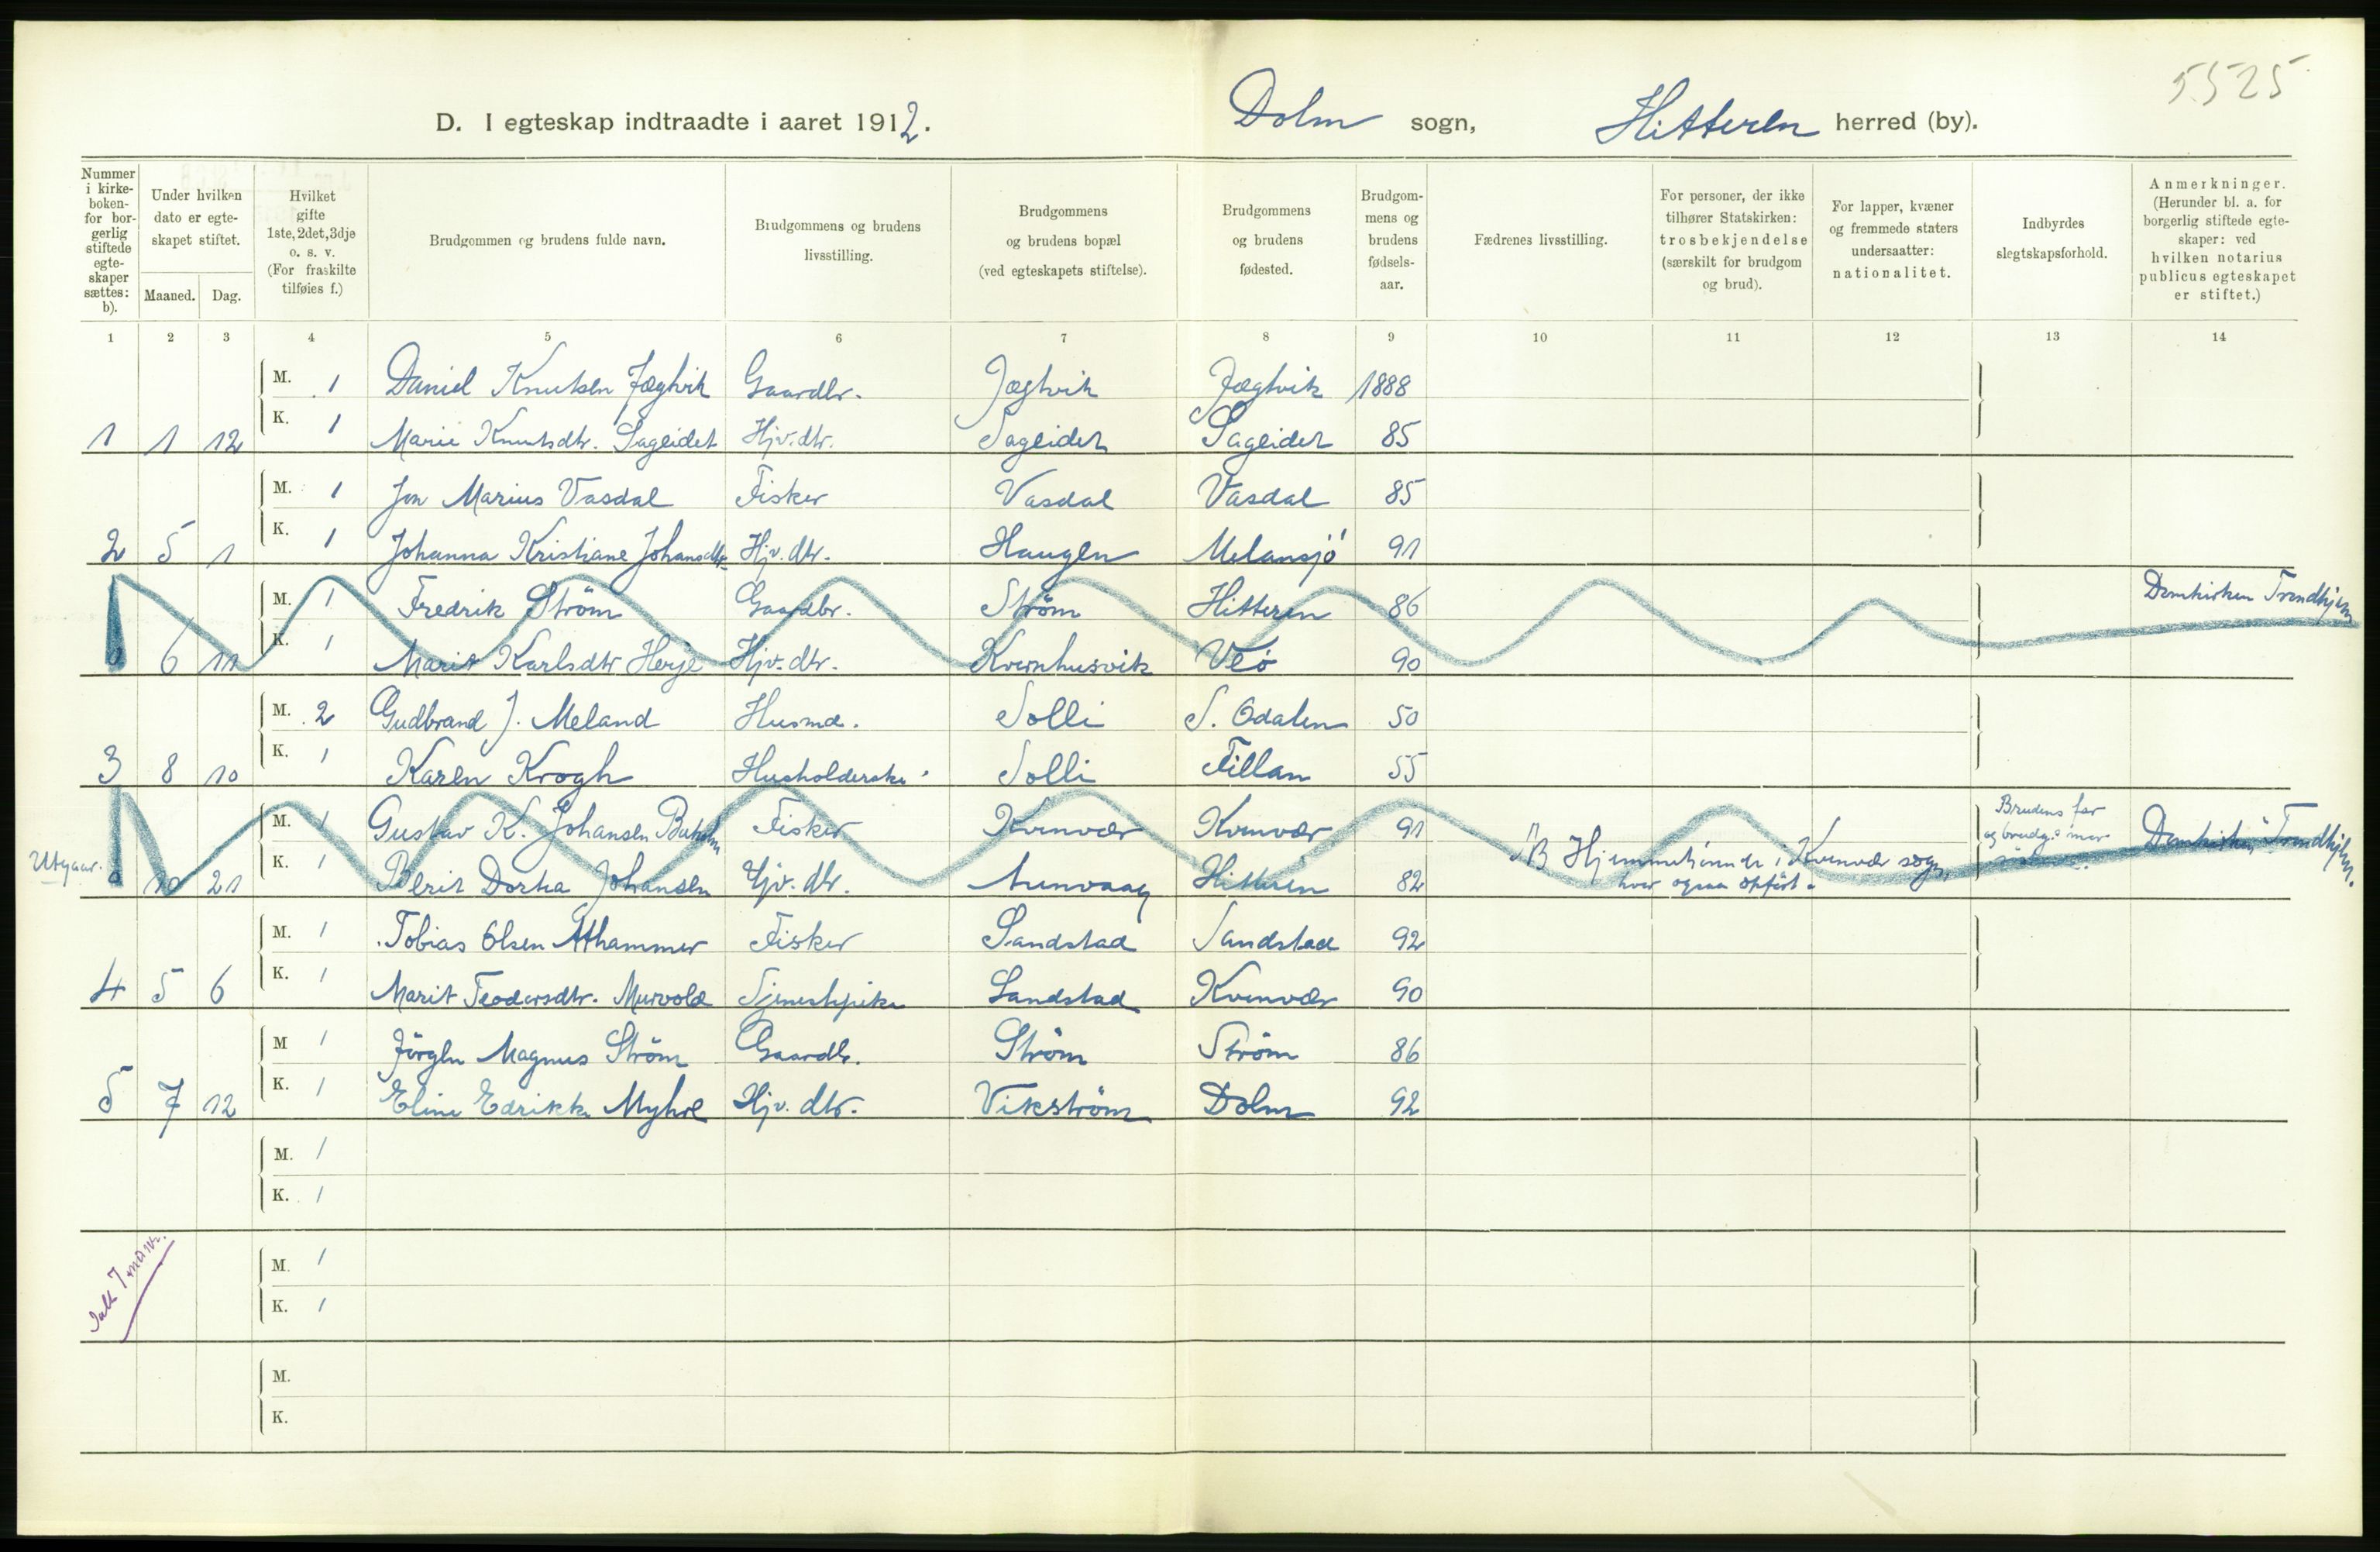 5525
D. I egteskap indtraadte i aaret 1912. Dolm sogn, Hitteren herred (by).
Nummer i kirkeboken- for borgerlig stiftede egteskaper sættes: b).
Under hvilken dato er egteskapet stiftet.
Maaned. Dag.
Hvilket gifte 1ste, 2det, 3dje o. s. v. (For fraskilte tilføies f.)
Brudgommen og brudens fulde navn.
Brudgommens og brudens livsstilling.
Brudgommens og brudens bopæl (ved egteskapets stiftelse).
Brudgommens og brudens fødested.
Brudgommens og brudens fødselsaar.
Fædrenes livsstilling.
For personer, der ikke tilhører Statskirken: trosbekjendelse (særskilt for brudgom og brud).
For lapper, kvæner og fremmede staters undersaatter: nationalitet.
Indbyrdes slegtskapsforhold.
Anmerkninger. (Herunder bl. a. for borgerlig stiftede egteskaper: ved hvilken notarius publicus egteskapet er stiftet.)
1 2 3 4 5 6 7 8 9 10 11 12 13 14
M. 1 Daniel Knutsen Jægtvik Gaardbr. Jægtvik Jægtvik 1888
1 1 12 K. 1 Marie Knutsdtr. Sageidet Hjv. dtr. Sageidet Sageidet 85
M. 1 Jon Marius Vasdal Fisker Vasdal Vasdal 85
2 5 1 K. 1 Johanna Kristiane Johansdtr. Hjv. dtr. Haugen Melansjö 91
M. 1 Fredrik Ström Gaardbr. Ström Hitteren 86 Domkirken Trondhjem
6 11 K. 1 Marit Karlsdtr Herje Hjv. dtr. Kvernhusvik Veö 90
M. 2 Gudbrand J. Meland Husmd. Solli S. Odalen 50
3 8 10 K. 1 Karen Krogh Husholderske Solli Fillan 55
M. 1 Gustav K. Johansen Fisker Kvenvær Kvenvær 91 Brudens far og brudg.s mor Domkirken, Trondhjem.
Utgaar. 10 21 K. 1 Berit Dortea Johansen Hjv. dtr. Hitteren 82 NB Hjemmehörende i Kvenvær sogn, hvor ogsaa opfört.
M. 1 Tobias Olsen Fisker Sandstad Sandstad 92
4 5 6 K. 1 Marit Teodorsdtr. Murvold Tjenestepike Sandstad Kvenvær 90
M 1 Jörgen Magnus Ström Gaardb. Ström Ström 86
5 7 12 K. 1 Eline Edrikke Myhre Hjv. dtr. Vikström Dolm 92
M. 1
K. 1
M. 1
K. 1
M.
K.